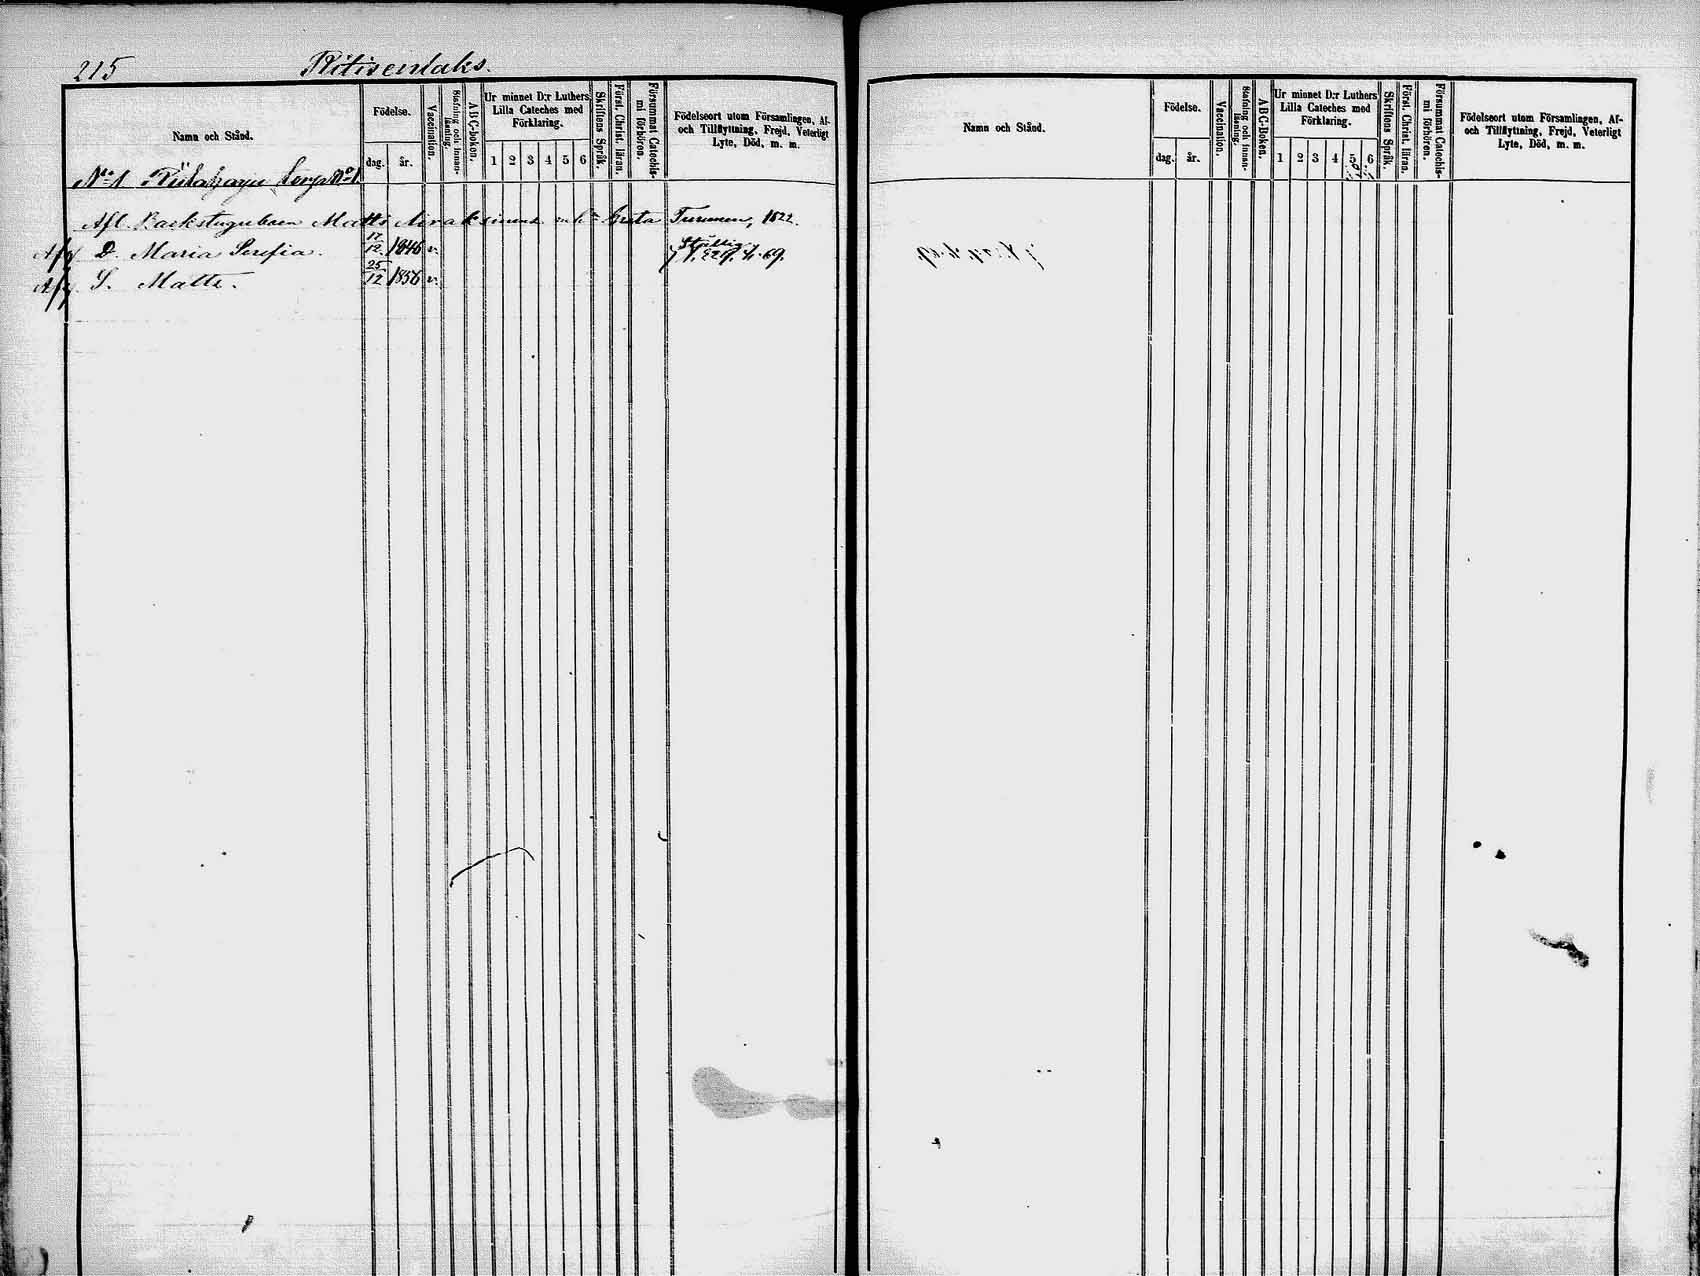 215 Ritisenlaks.
Namn och Stånd.
Födelse.
dag. år.
Vaccination.
Stafning och Innanläsning.
ABC-boken.
Ur minnet D:r Luthers Lilla Cateches med Förklaring.
1 2 3 4 5 6
Skriftens Språk.
Först. Christ. läran.
Försummat Catechismi förhören.
Födelseort utom Församlingen, Af- och Tillflyttning, Frejd, Veterligt Lyte, Död, m. m.
No 1 Torp No 1
Afl. Backstuguboen Matts Greta Turunen, 1822.
Afg D. Maria Serefia. 17/12 1846 v.
Afg S. Matts. 25/12 1856 v.
Namn och Stånd.
Födelse.
dag. år.
Vaccination.
Stafning och Innanläsning.
ABC-Boken.
Ur minnet D:r Luthers Lilla Cateches med Förklaring.
1 2 3 4 5 6
Skriftens Språk.
Först. Christ. läran.
Försummat Catechismi förhören.
Födelseort utom Församlingen, Af- och Tillflyttning, Frejd, Veterligt Lyte, Död, m. m.